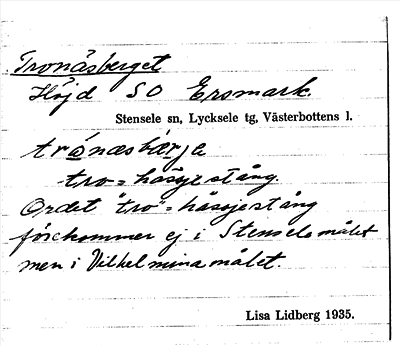 Tronåsberget
Höjd SO Ersmark
Stensele sn, Lycksele tg, Västerbottens l.
trónæsbærja
tro = hässjestång.
Ordet "tro" = hässjestång
förekommer ej i Stenselemålet
men i Vilhelminamålet.
Lisa Lidberg 1935.